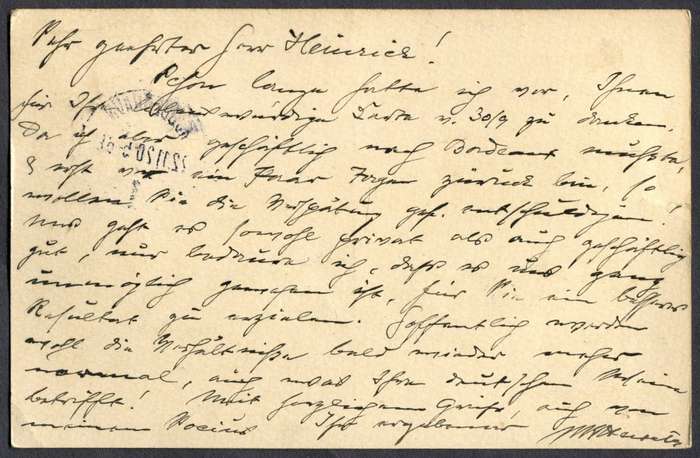 Sehr geehrter Herr Heinrich!
Schon lange hatte ich vor, Ihnen
für Ihre liebenswürdige Karte v. 30/9 zu danken.
Da ich aber geschäftlich nach Bordeaux musste,
& erst vor ein Paar Tagen zurück bin, so
wollen Sie die Verspätung gef. entschuldigen!
Uns geht es sowohl privat als auch geschäftlich
gut, nur bedaure ich, dass es uns ganz
unmöglich gewesen ist, für Sie ein besseres
Resultat zu erzielen. Hoffentlich werden
wohl die Verhältnisse bald wieder mehr
normal, auch was Ihre deutschen Weine
betrifft! Mit herzlichem Gruß, auch von
meinem Socius Ihr ergebener